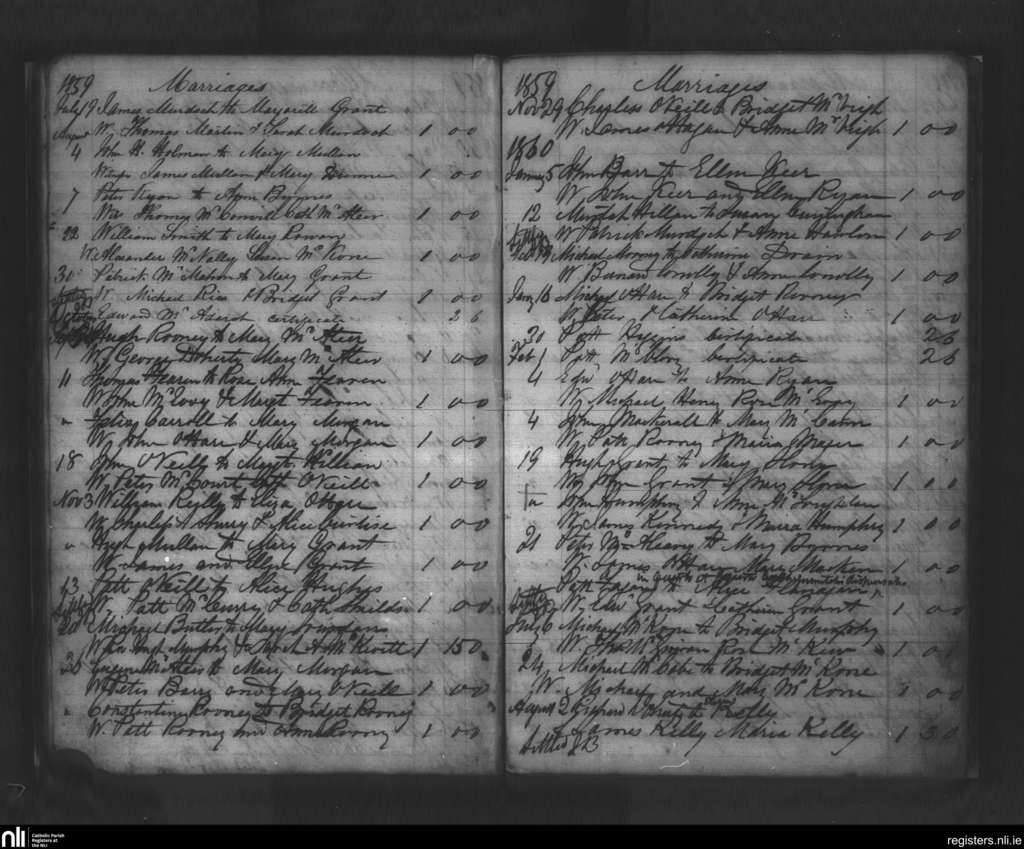 1859 Marriages
July 9 James Murdoch to Margarett Grant
W. Thomas Martin & Sarah Murdoch 1 00
4 John H. Holman to Mary Mullan
James Mullan & Mary 1 00
7 Peter Ryan to Ann Byrnes
Wit Thomas McConvill Cath McAteer 1 00
22 William Smith to Mary Rowan
W Alexander McNally Susan McKone 1 00
30 Patrick McMahon to Mary Grant
W. Michael Rice & Bridget Grant 1 00
October Edward McAdarah certificate 2 6
Hugh Rooney to Mary McAteer
W. George Doherty Mary McAteer 1 00
11 Thomas Fearen to Rose Ann Fearen
W John McEvoy & Margt Fearen 1 00
" Felix Carroll to Mary Morgan
W. John OHare & Mary Morgan 1 00
18 John O'Neill to Margt Killian
W. Peter McCourt Cath O'Neill 1 00
Nov 3 William Reilly to Eliza O'Hare
W. Charles & Alice 1 00
" Hugh Mullan to Mary Grant
W. James and Ellen Grant 1 00
13 Patt O'Neill to Alice Hughes
W. Patt McCurry & Cath Shields 1 00
20 Michael Butler to Mary Jourdan
W Hugh Murphy & McKevitt 1 150
26 Eugene McAteer to Mary Morgan
W Peter Barry and Mary O'Neill 1 00
" Constantine Rooney to Bridget Rooney
W. Patt Rooney and Anne Rooney 1 00
1859 Marriages
Nov 29 Charles O'Neill to Bridget McVeigh
W. James O'Hagan & Anne McVeigh 1 00
1860
January 5 John Barr to Ellen Keer
W John Keer and Ellen Ryan 1 00
12 Murtah Hillan to Susan Cuningham
W Patrick Murdoch & Anne Hanlon 1 00
Michael to Catherine Drain
W Bernard Conolly & Ann Conolly 1 00
Jany 16 Michael O'Hare to Bridget Rooney
W Peter & Catherine O'Hare 1 00
20 Patt Higgins certificate 26
Feb 1 Patt McEvoy certificate 26
4 Edwd O'Hare to Anne Ryan
W. Michael Henry Rose McEvoy 1 00
4 John to Mary McCabe
W. Patk Rooney & Maria 1 00
19 Hugh Grant to Mary
W. John Grant & Mary 1 00
" John Humphry & Anne McLoughlin
W. James Kennedy & Maria Humphry 1 00
21 Peter McHeavey to Mary Byrnes
W. James O'Hare Mary Macken 1 00
Patt to Alice Flanagan
W. Edw Grant & Catherine Grant 1 00
July 6 Michael McKone to Bridget Murphy
W. Thos McGowan Rose McKeown 1 00
24 Michael McCabe to Bridget McKone
W. Michael and Mary McKone 1 00
August 2 Richard Grant to Kelly
James Kelly Maria Kelly 1 30
Settled JB
nli Catholic Parish Registers at the NLI
registers.nli.ie